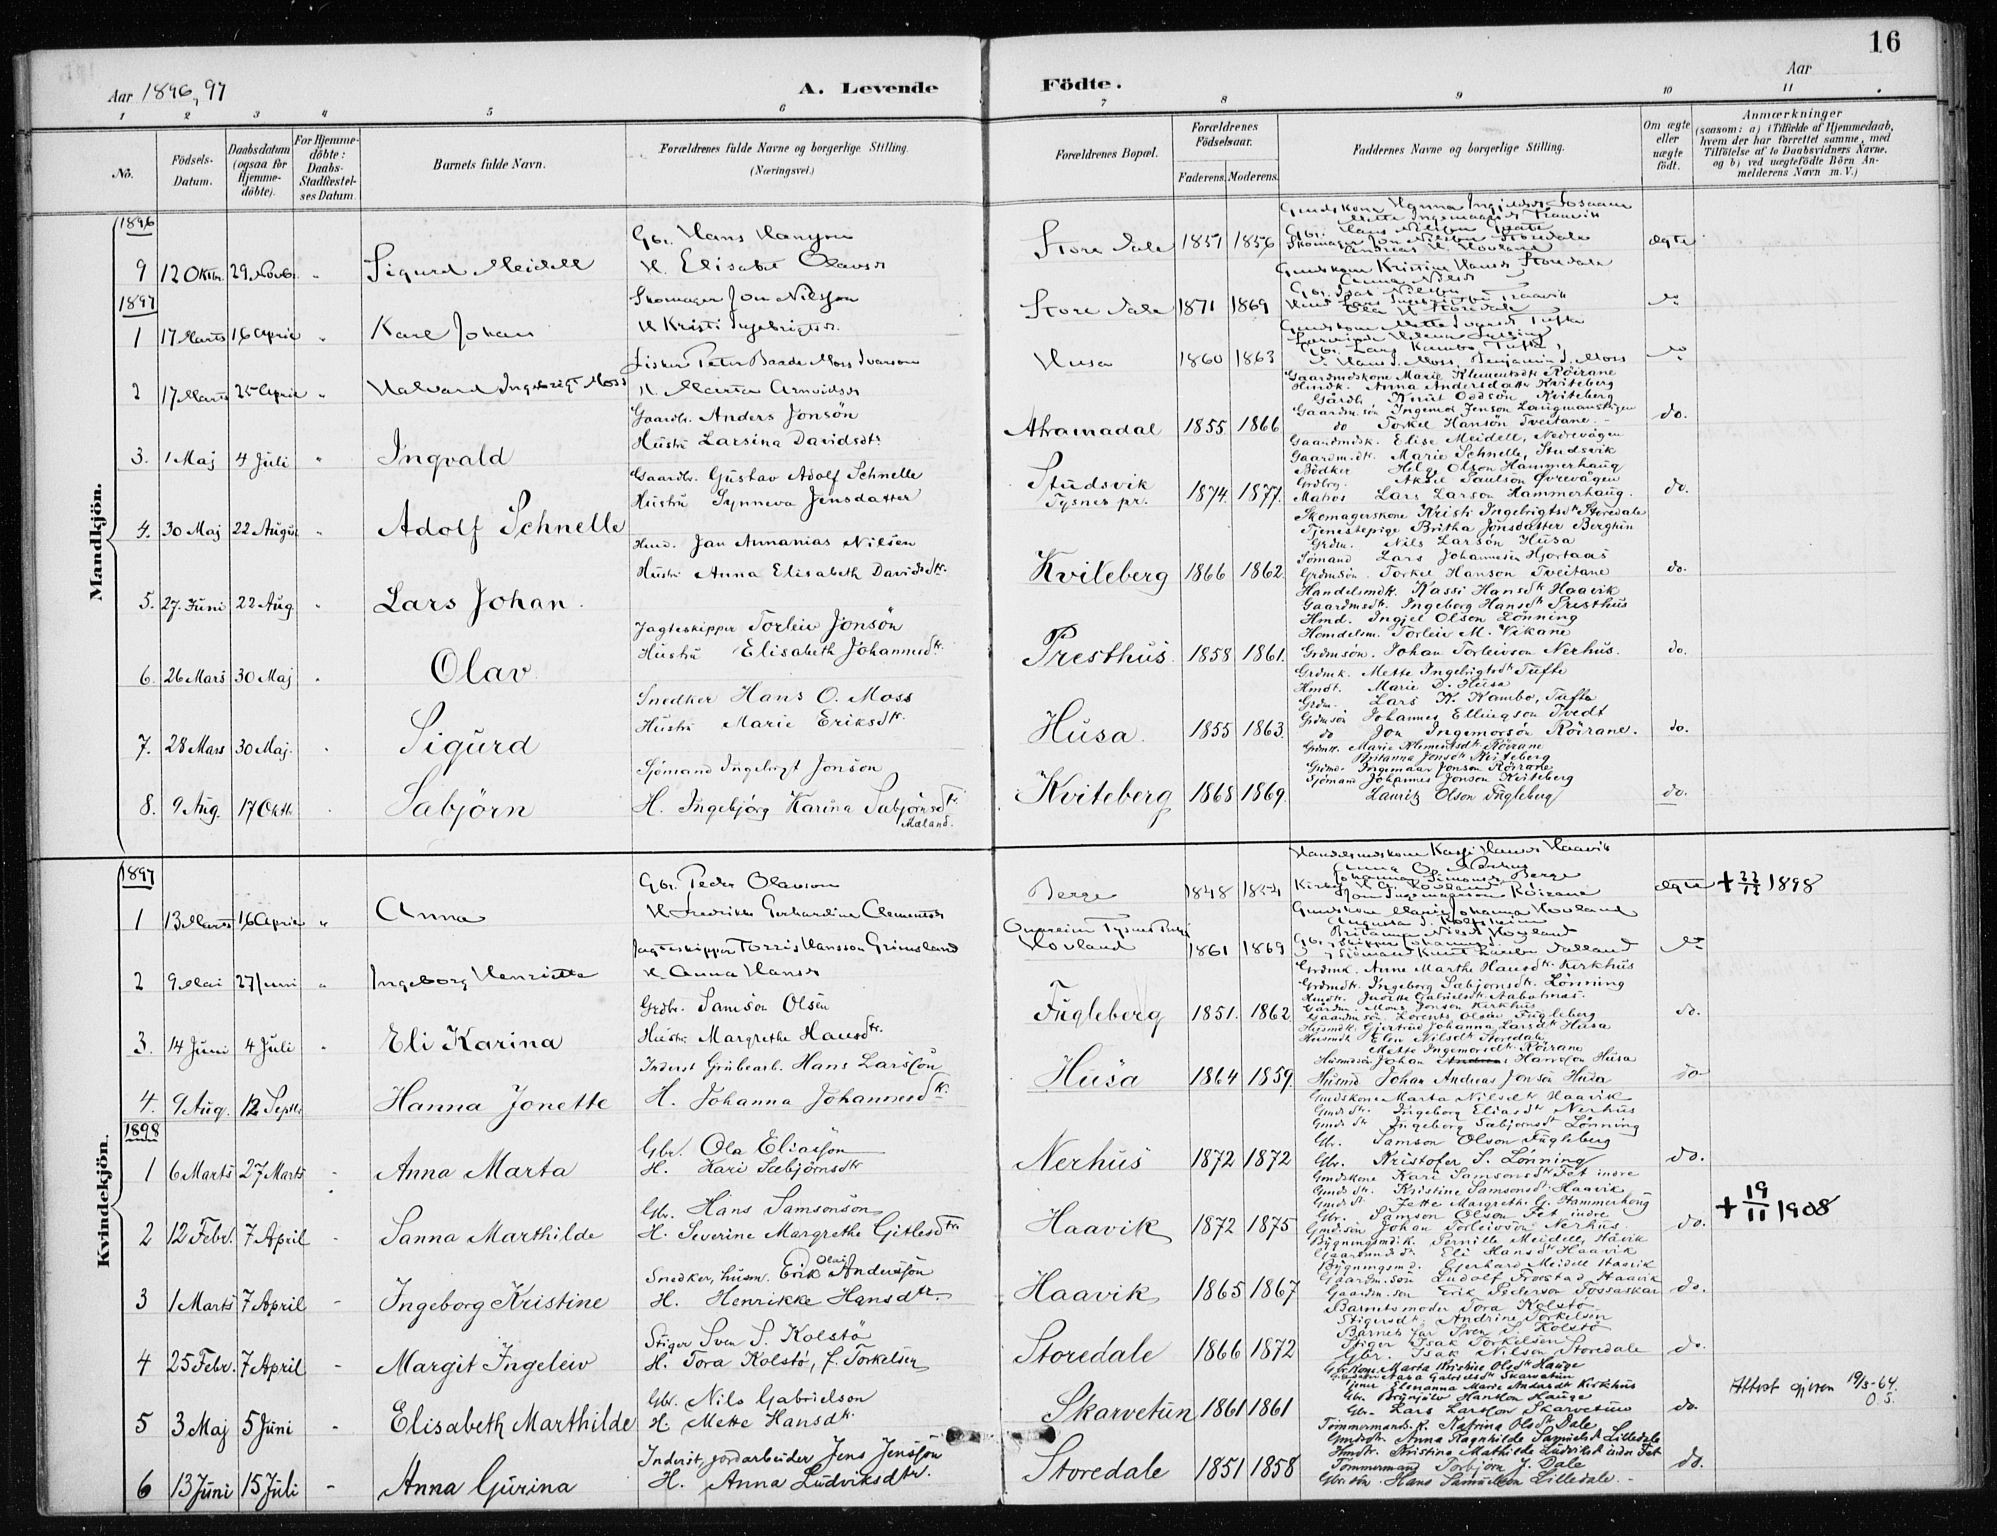 16
Aar 1896, 97
A. Levende Födte.
Aar
1 2 3 4 5 6 7 8 9 10 11
No.
Födsels-Datum.
Daabsdatum (ogsaa for Hjemme-döbte).
For Hjemme-döbte: Daabs-Stadfæstel-ses Datum.
Barnets fulde Navn.
Forældrenes fulde Navne og borgerlige Stilling. (Næringsvei.)
Forældrenes Bopæl.
Forældrenes Födselsaar.
Faderens. Moderens.
Faddernes Navne og borgerlige Stilling.
Om ægte eller uægte födt.
Anmærkninger
(saasom: a) i Tilfælde af Hjemmedaab, hvem der har forrettet samme, med Tilföielse af to Daabsvidners Navne, og b) ved uægtefödte Börn An-melderens Navn m. V.)
Mandkjön.
1896
9 12 Oktbr. 29. Novbr. " Sigurd Meidell
Gbr. Hans Hansson
H. Elisabet Olavsdr
Store Dale 1857 1856 ægte
1897
1 17 Marts 16 April " Karl Johan
Skomager Jon Nilsson
H Kristi Ingebrigtsdr.
Store Dale 1871 1869 do
2 17 Marts 25 April " Halvard Ingebrigt Moss
Fisker Peter Baade Moss Ivarson
H. Marta Arnvidsdr
Husa 1860 1863 do
3. 1 Maj 4 Juli " Ingvald
Gaardbr. Anders Jonsön
Hustru Larsina Davidsdtr
Akramadal 1855 1866 do.
Gaardmdskone Marie Klementsdtr Röirane
Hmdk. Anna Andersdatter Kviteberg
Gårdb. Knut Oddsön Kviteberg
Gaardm. sön Ingemod Jenson Langmanskigen
do Torkel Hansön Tveitane
4. 30 Maj 22 August " Adolf Schnelle
Gaardbr. Gustav Adolf Schnelle
Hustru Synneva Jensdatter
Studsvik Tysnes pr. 1874. 1877. do.
Gaardmdsk. Elise Meidell, Nedrevågen
Gaardm. dt. Marie Schnelle, Studsvik
Bödker Helge Olson Hammerhaug
Grdbrg. Aksel Paulson Övrevågen
Matros Lars Larson Hammerhaug.
5. 27. Juni 22 Aug " Lars Johan.
Hmd. Jan Annanias Nilsen
Hustr. Anna Elisabeth Davidsdtr.
Kviteberg 1866 1862. do.
Skomagerskone Kristi Ingebrigtsdtr Storedale
Tjenestepige Britha Jonsdatter Berghin
Grdm. Nils Larsön Husa
Sömand Lars Johannesen Hjortaas
Grdmsön. Torkel Hanson Tveitane
6. 26 Mars 30 Maj " Olav
Jagteskipper Torleiv Jonsön
Hustru Elisabeth Johannesdtr.
Presthus 1858 1861. do.
Handelsmdk. Kassi Hansdtr Haavik
Gaardmsdtr. Ingeborg Hansdtr Presthus
Hmd. Ingjel Olson Lönning
Handelsm. Torleiv M. Vikane
Grdmsön. Johan Torleivson Nerhus.
7. 28 Mars 30 Maj. " Sigurd
Snedker Hans O. Moss
Hustru Marie Eriksdtr.
Husa. 1855 1863. do.
Grdmk. Mette Ingebrigtsdtr Tufte
Hmdt. Marie D. Husa
Grdm. Lars K. Kambo, Tufta
Grdmsön Johannes Ellingson Tvedt
do Jon Ingemorsön Röirane.
8. 9 Aug. 17 Oktbr. " Sabjörn
Sjömand Ingebrigt Jonson
H. Ingebjörg Karina Sabjörnsdtr. Mæland.
Kviteberg 1868 1869. do.
Grdmk. Marie Klementsdtr. Röirane
Britanna Jonsdtr Kviteberg
Grdmd. Ingemaar Jonson Röirane
Sjömand Johannes Jonson Kviteberg
Lauritz Olson Fugleberg
Kvindekjön.
1897
1 13 Marts 16 April " Anna
Gbr. Peder Olavson
H Fredrikke Gerhardine Clementsdr
Berge 1848 1854 ægte + 22/12 1898
2 9 Mai 27 Juni " Ingeborg Henriette
Jagteskipper Torris Hansson Grimsland
H. Anna Hansdr
Hovland 1861 1869 do
3. 14 Juni 4 Juli " Eli Karina
Grdbr. Samson Olsen
Hustru Margrethe Hansdtr.
Fugleberg 1851. 1862 do.
Grdmk. Anne Marthe Hansdtr. Kirkhus
Grdmdtr. Ingeborg Sæbjornsdtr. Lönning
Gårdm. Mons Jonson Kirkhus
Gaardm sön Lorents Olson Fugleberg
4. 9 Aug. 12 Septbr Hanna Jonette
Inderst Grubearb. Hans Larsson
H. Johanna Johannesdtr.
Husa 1864 1859. do
Husmdk. Gjertrud Johanna Larsdtr Husa
Husmdt Elen Nilsdtr Storedale
Mette Ingemorsdtr. Röirane
Husmdsön Johan Hansson Husa
Husmd Johan Andreas Jonsön Husa
1898
1 6 Marts 27 Marts " Anna Marta
Gbr. Ola Eliasson
H. Kari Sæbjörnsdtr
Nerhus 1872 1872 do.
Gmdskone Marta Nilsdtr Haavik
Gmds dtr. Ingeborg Eliasdtr Nerhus
Gmds dtr. Ingeborg Sæbjornsdtr Lönning
Gbr. Samson Olson Fugleberg
Gbr. Kristofer S. Lönning
2 12 Febr. 7 April - Sanna Marthilde
Gbr. Hans Samsonsön
H. Severine Margrethe Gitlesdtr.
Haavik 1872 1875 do. + 19/11 1908
Gmdskone Kari Samsonsdtr Fet indre
Gmds dtr. Kristine Samsonsdtr Haavik
Gmds dt. Jette Margrethe G. Hammerhoug
Gbr. Samson Olson Fet indre
Gmdsön Johan Torleivson Nerhus.
3 1 Marts 7 April - Ingeborg Kristine
Snedker, husm. Erik Olai Andersson
H. Henrikke Hansdtr.
Haavik 1865 1867 do.
Bygningsmd.k. Pernille Meidell, Håvik
Gaardmds dt. Eli Hansdtr Haavik
Bygningsmd. Gjerhard Meidell Haavik
Gaardm. sön Ludolf Frokstad Haavik
Gaardm. sön Erik Pederson Fossaskar
4 25 Febr. 7 April - Margit Ingeleiv
Stiger Sven S. Kolstö
H. Tora Kolstö, f. Torkelsen
Storedale 1866 1872 do.
Barnets moder Tora Kolstö
Stigersdt. Andrine Torkelsen
Barnets far Sven S. Kolstö
Stiger Isak Torkelsen
Gbr. Isak Nilson Storedale
5 3 Maj 5 Juni - Elisabeth Marthilde
Gbr. Nils Gabrielson
H Mette Hansdtr
Skarvetun 1861 1861 do. Attest given 19/3-64. O S.
Gbr kone Marta Kristine Olsdtr Hauge
Gbr. Brynjulv Hansson Hauge
Gbr. Lars Larsson Skarvetun
6 13 Juni 15 Juli - Anna Gurina
Inderst, jordarbeider Jens Jensson
H. Anna Ludviksdtr.
Storedale 1851 1858 do.
Tömmermands.k. Katrina Olsdtr Dale
Gmdsdtr. Anna Ragnhilde Samuelsdt Lilledale
Hmdtr. Kristina Mathilde Ludviksdt indre Fet
Tömmermand Torbjörn J. Dale
Gbr. sön. Hans Samuelson Lilledale.